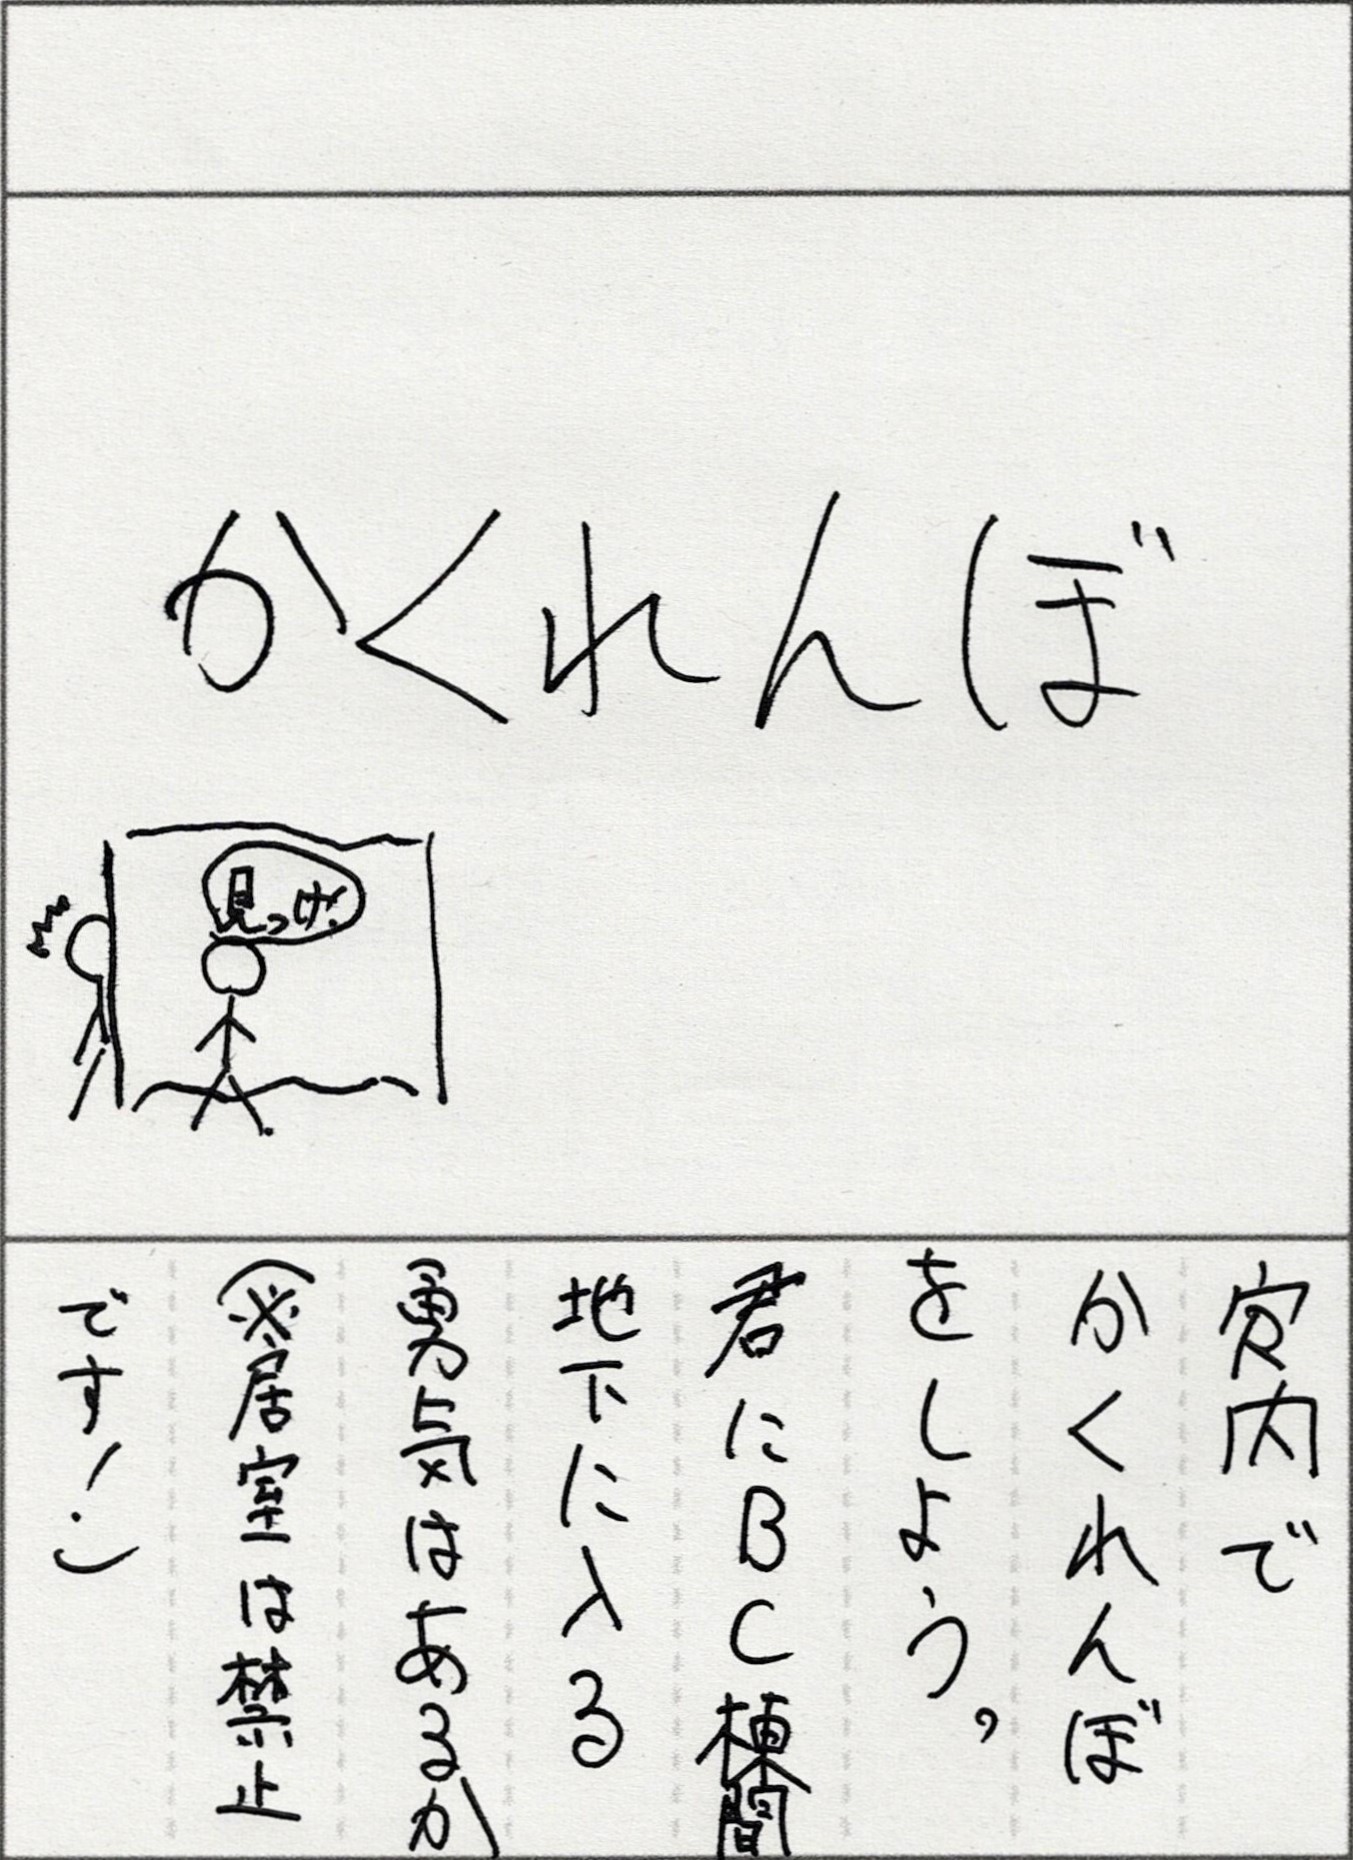 かくれんぼ
見っけ
穴内で
かくれんぼ
をしよう。
君にBC棟間
地下に入る
勇気はあるか
(※居室は禁止
です!)